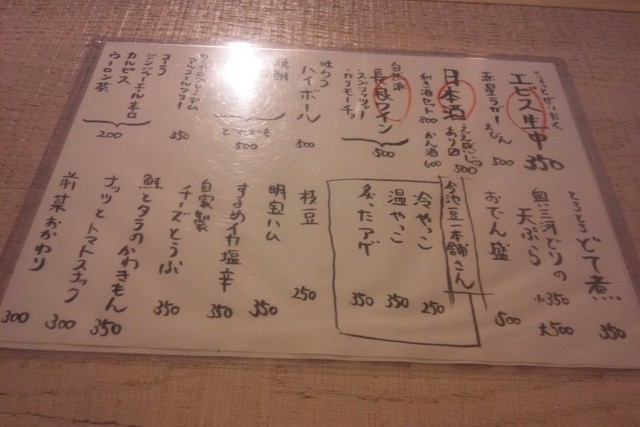 ちょっとぜいたく
エビス生中 350
赤星ラガー大びん 500
日本酒 あり〼 500
利き酒セット 800 かん酒 600
自然派
長良ワイン
スプリッツァー
カリモーチョ
500
味わう
ハイボール 500
焼酎
どれでも
500
アルコールフリー 350
コーラ
ジンジャーエール辛口
カルピス
ウーロン茶
200
とろとろ
どて煮 350
奥三河どりの
天ぷら 小350 大500
おでん盛 500
今池豆一本舗さん
冷やっこ 250
温やっこ 350
炙ったアゲ 350
枝豆 250
明宝ハム 350
するめイカ塩辛 350
自家製
チーズとうふ 350
鮭とタラのかわきもん 350
ナッツとトマトスナック 300
前菜おかわり 300